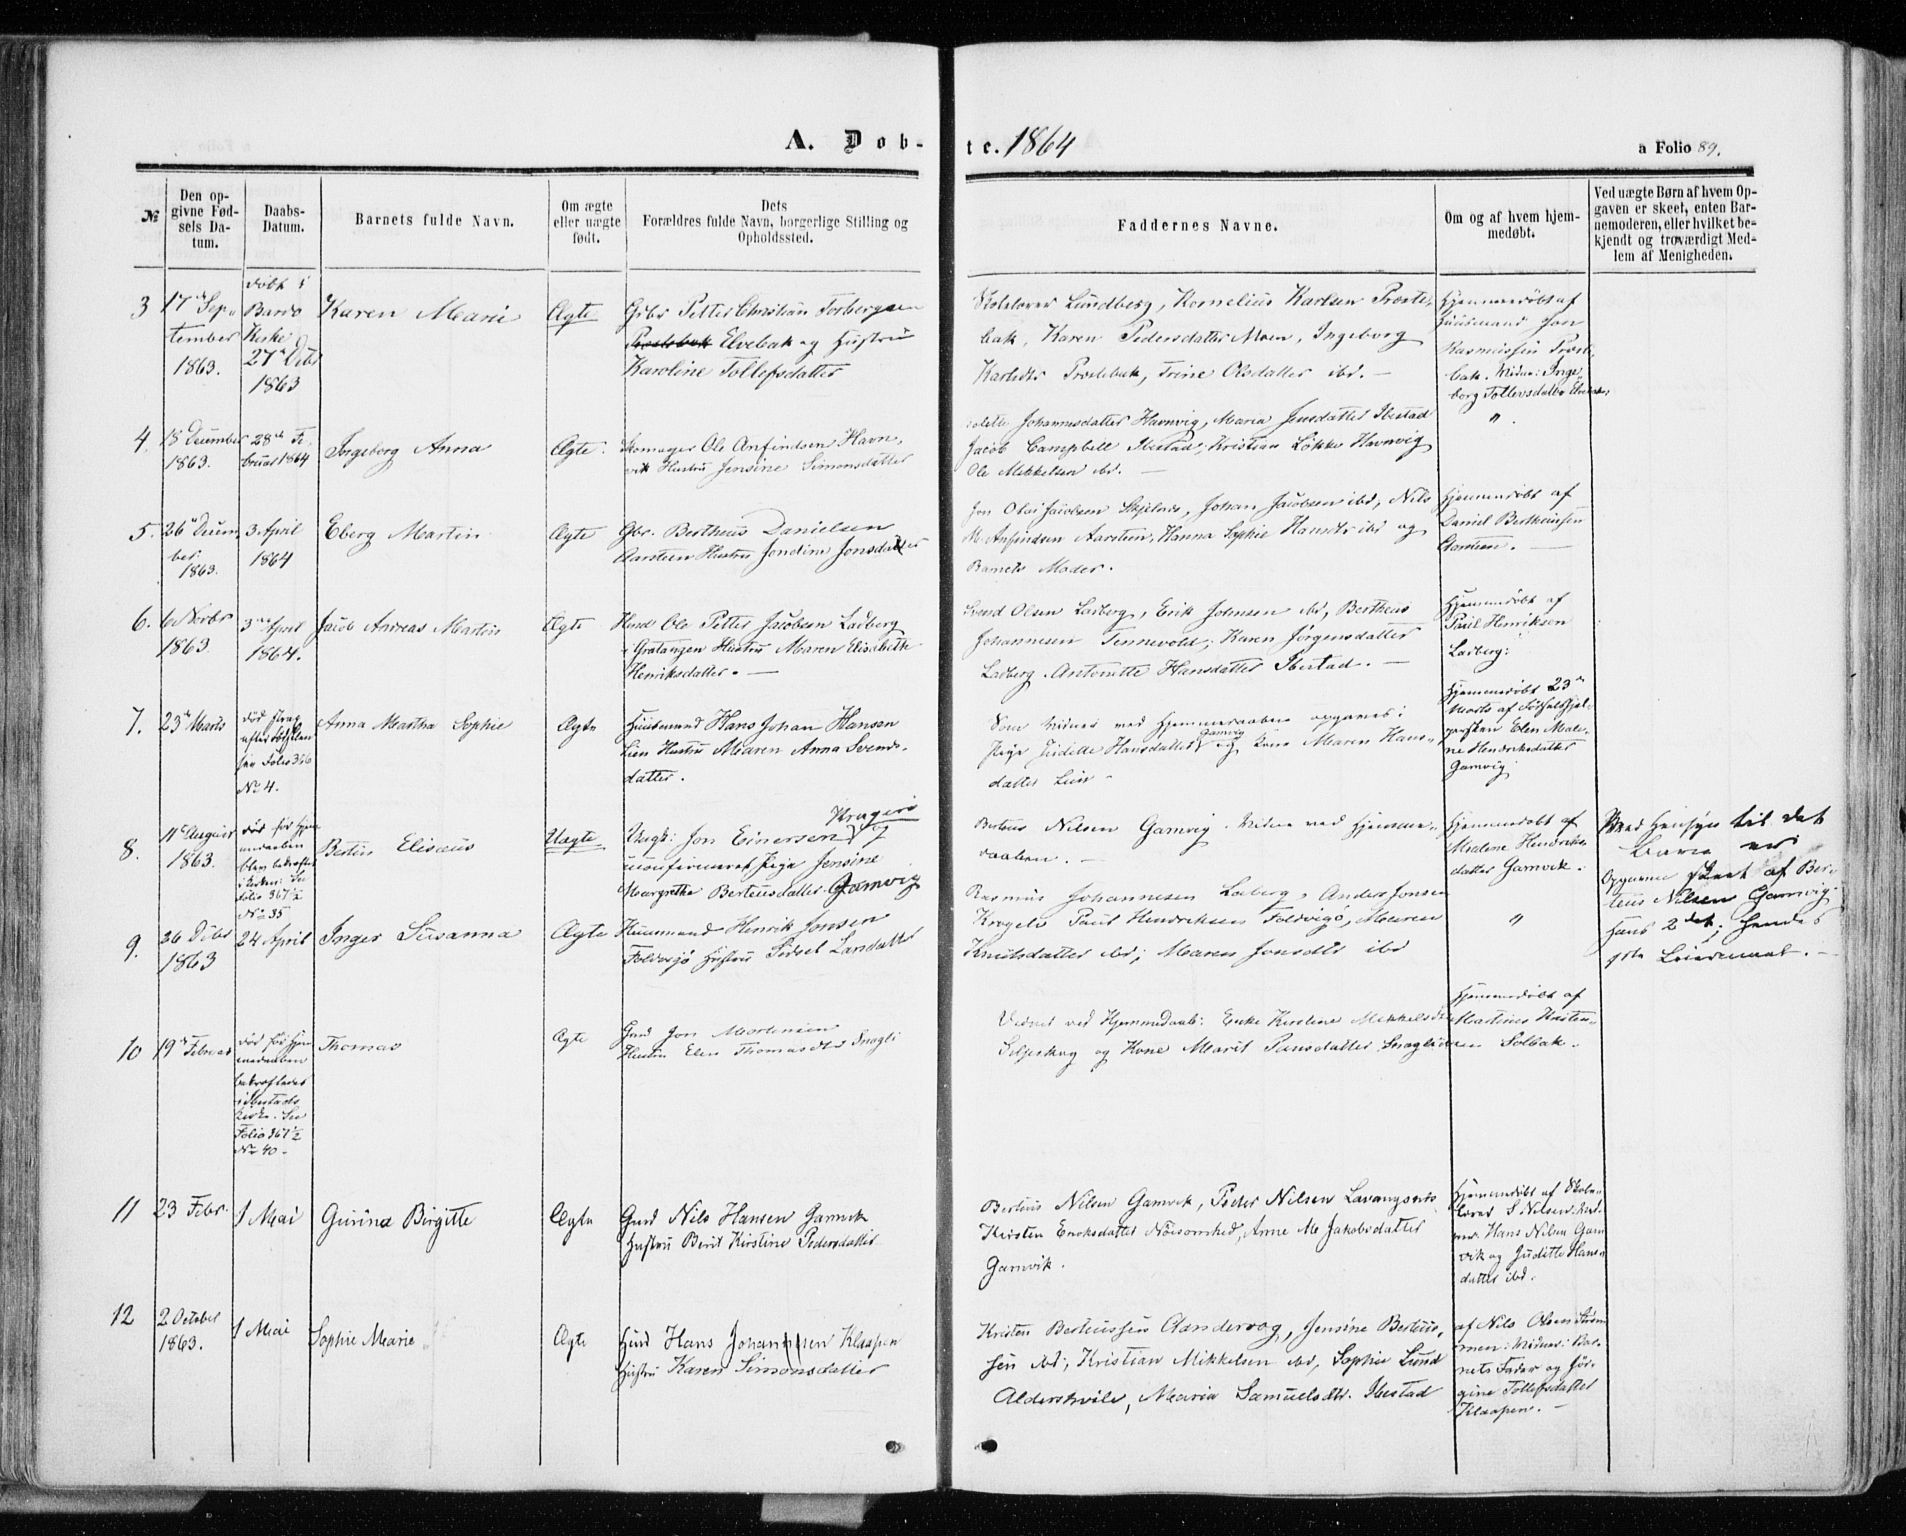 A. Døb-te. 1864
a Folio 89.
№
Den opgivne Fødsels Datum.
Daabs-Datum.
Barnets fulde Navn.
Om ægte eller uægte født.
Dets Forældres fulde Navn, borgerlige Stilling og Opholdssted.
Faddernes Navne.
Om og af hvem hjemmedøbt.
Ved uægte Børn af hvem Opgaven er skeet, enten Barnemoderen, eller hvilket bekjendt og troværdigt Medlem af Menigheden.
3
17de Sep-
tember
1863.
døbt i
Bardo
Kirke
27de Dcbr
1863
Karen Marie
Ægte
Gbr Petter Christian Torbergsen
Elvebak og Hustru
Karoline Tollefsdatter
Skolelærer Lundberg, Kornelius Karlsen Præste-
bak, Karen Pedersdatter Moen, Ingeborg
Karlsdtr Præstebak, Trine Olsdatter ibd. –
Hjemmedøbt af
Huusmand Jon
Rasmussen Præste-
bak. Vidne: Inge-
borg Tollevsdatter Elvebak
4.
15 December
1863.
28de Fe-
bruar 1864
Ingeborg Anna
Ægte.
Skomager Ole Anfindsen Havn-
vik Hustru Jensine Simonsdatter
Johannesdatter Hamvig, Maria Jensdatter Ibestad
Jacob Campbell Ibestad, Kristian Løkke Havnvig
Ole Mikkelsen ibd. –
"
5.
26de Decem-
ber
1863.
3 April
1864
Eberg Martin
Ægte
Gbr. Bertheus Danielsen
Aarsteen Hustru Jondine Jonsdatter
Jon Olai Jacobsen, Johan Jacobsen ibd, Nils
M. Anfindsen Aarsteen, Hanna Sophie Hansdtr ibd og
Barnets Moder.
Hjemmedøbt af
Daniel Bertheussen
Aarsteen. –
6.
6 Novbr
1863.
3de April
1864.
Jacob Andreas Martin
Ægte
Huusd Ole Petter Jacobsen Laberg
i Gratangen Hustru Maren Elisabeth
Henriksdatter. –
Svend Olsen Laberg, Erik Johnsen ibd, Bertheus
Johannesen Tennevold, Karen Jørgensdatter
Laberg, Antonette Hansdatter Ibestad. –
Hjemmedøbt af
Paul Henriksen
Laberg.
7.
23de Marts
død strax
efter
see Folio 366
No 4.
Anna Martha Sophie
Ægte
Huusmand Hans Johan Hansen
Lien Hustru Maren Anna Svends-
datter.
Som Vidner ved Hjemmedaaben opgaves:
Pige Judithe Hansdatter Gamvig og Kone Maren Hans-
datter Lien –
Hjemmedøbt 23de
Marts af Fødselshjæl-
persken Elen Male-
ne Hendriksdatter
Gamvig
8.
11te August
1863.
død før Hjem-
medaaben
blev bekræftet
i Kirken: See
Folio 367½
No 35
Bertin Elisæus
Uægte
Ungk: Jon Einersen Kragerø og
ukonfirmeret Pige Jensine
Margrethe Berteusdatter Gamvig
Berteus Nilsen Gamvig. Vidne ved Hjemme-
daaben. –
Hjemmedøbt af
Malene Hendriks-
datter Gamvik.
Med Hensyn til det
er
Opgavene skeet af Ber-
teus Nilsen Gamvig
Hans 2det, hendes
1ste Leiermaal. –
9.
26 Dcbr
1863
24 April
Inger Susanna
Ægte
Huusmand Henrik Jonsen
Foldvigø Hustru Sidsel Larsdatter
Rasmus Johannesen Laberg, Anders Jonsen
Krogelv Paul Hendriksen Foldvigø, Maren
Knutsdatter ibd, Maren Jonsdtr ibd
"
10
19de Februar
død før Hjem-
medaaben
bekræftedes
i Ibestads
Kirke. See
Folio 367½
No 40 –
Thomas
Ægte
Gmd Jon Mortensen
Hustru Elen Thomasdtr Snagli
Vidner ved Hjemmedaab: Enke Kirstine Mikkelsdtr
Seljeskog og Kone Marit Hansdatter Snagli
Hjemmedøbt af
Martines Kristen-
sen Solbak.
11
23 Febr.
1 Mai
Gurina Birgitte
Ægte
Gmd Nils Hansen Gamvik
Hustru Berit Kirstine Pedersdatter
Berteus Nilsen Gamvik, Peder Nilsen Lavangseid
Kirsten Eriksdatter Nøisomhed, Anne M. Jakobsdatter
Gamvik.
Hjemmedøbt af Skole-
lærer S Nilsen. Vid-
ner. Hans Nilsen Gam-
vik og Judithe Hans-
datter ibd.
12
2 October
1863.
1 Mai
Sophie Marie
Ægte
Huusd Hans Johannesen Klaapen
Hustru Karen Simonsdatter
Kristen Berteussen Aandervog, Jensine Berteus-
sen ibd, Kristian Mikkelsen ibd, Sophie Lund
Aldershvile, Maria Samuelsdtr. Ibestad
af Nils Olsen Strøm-
men: Vidner: Bar-
nets Fader og Jør-
gine Tollefsdatter
Klaapen. –